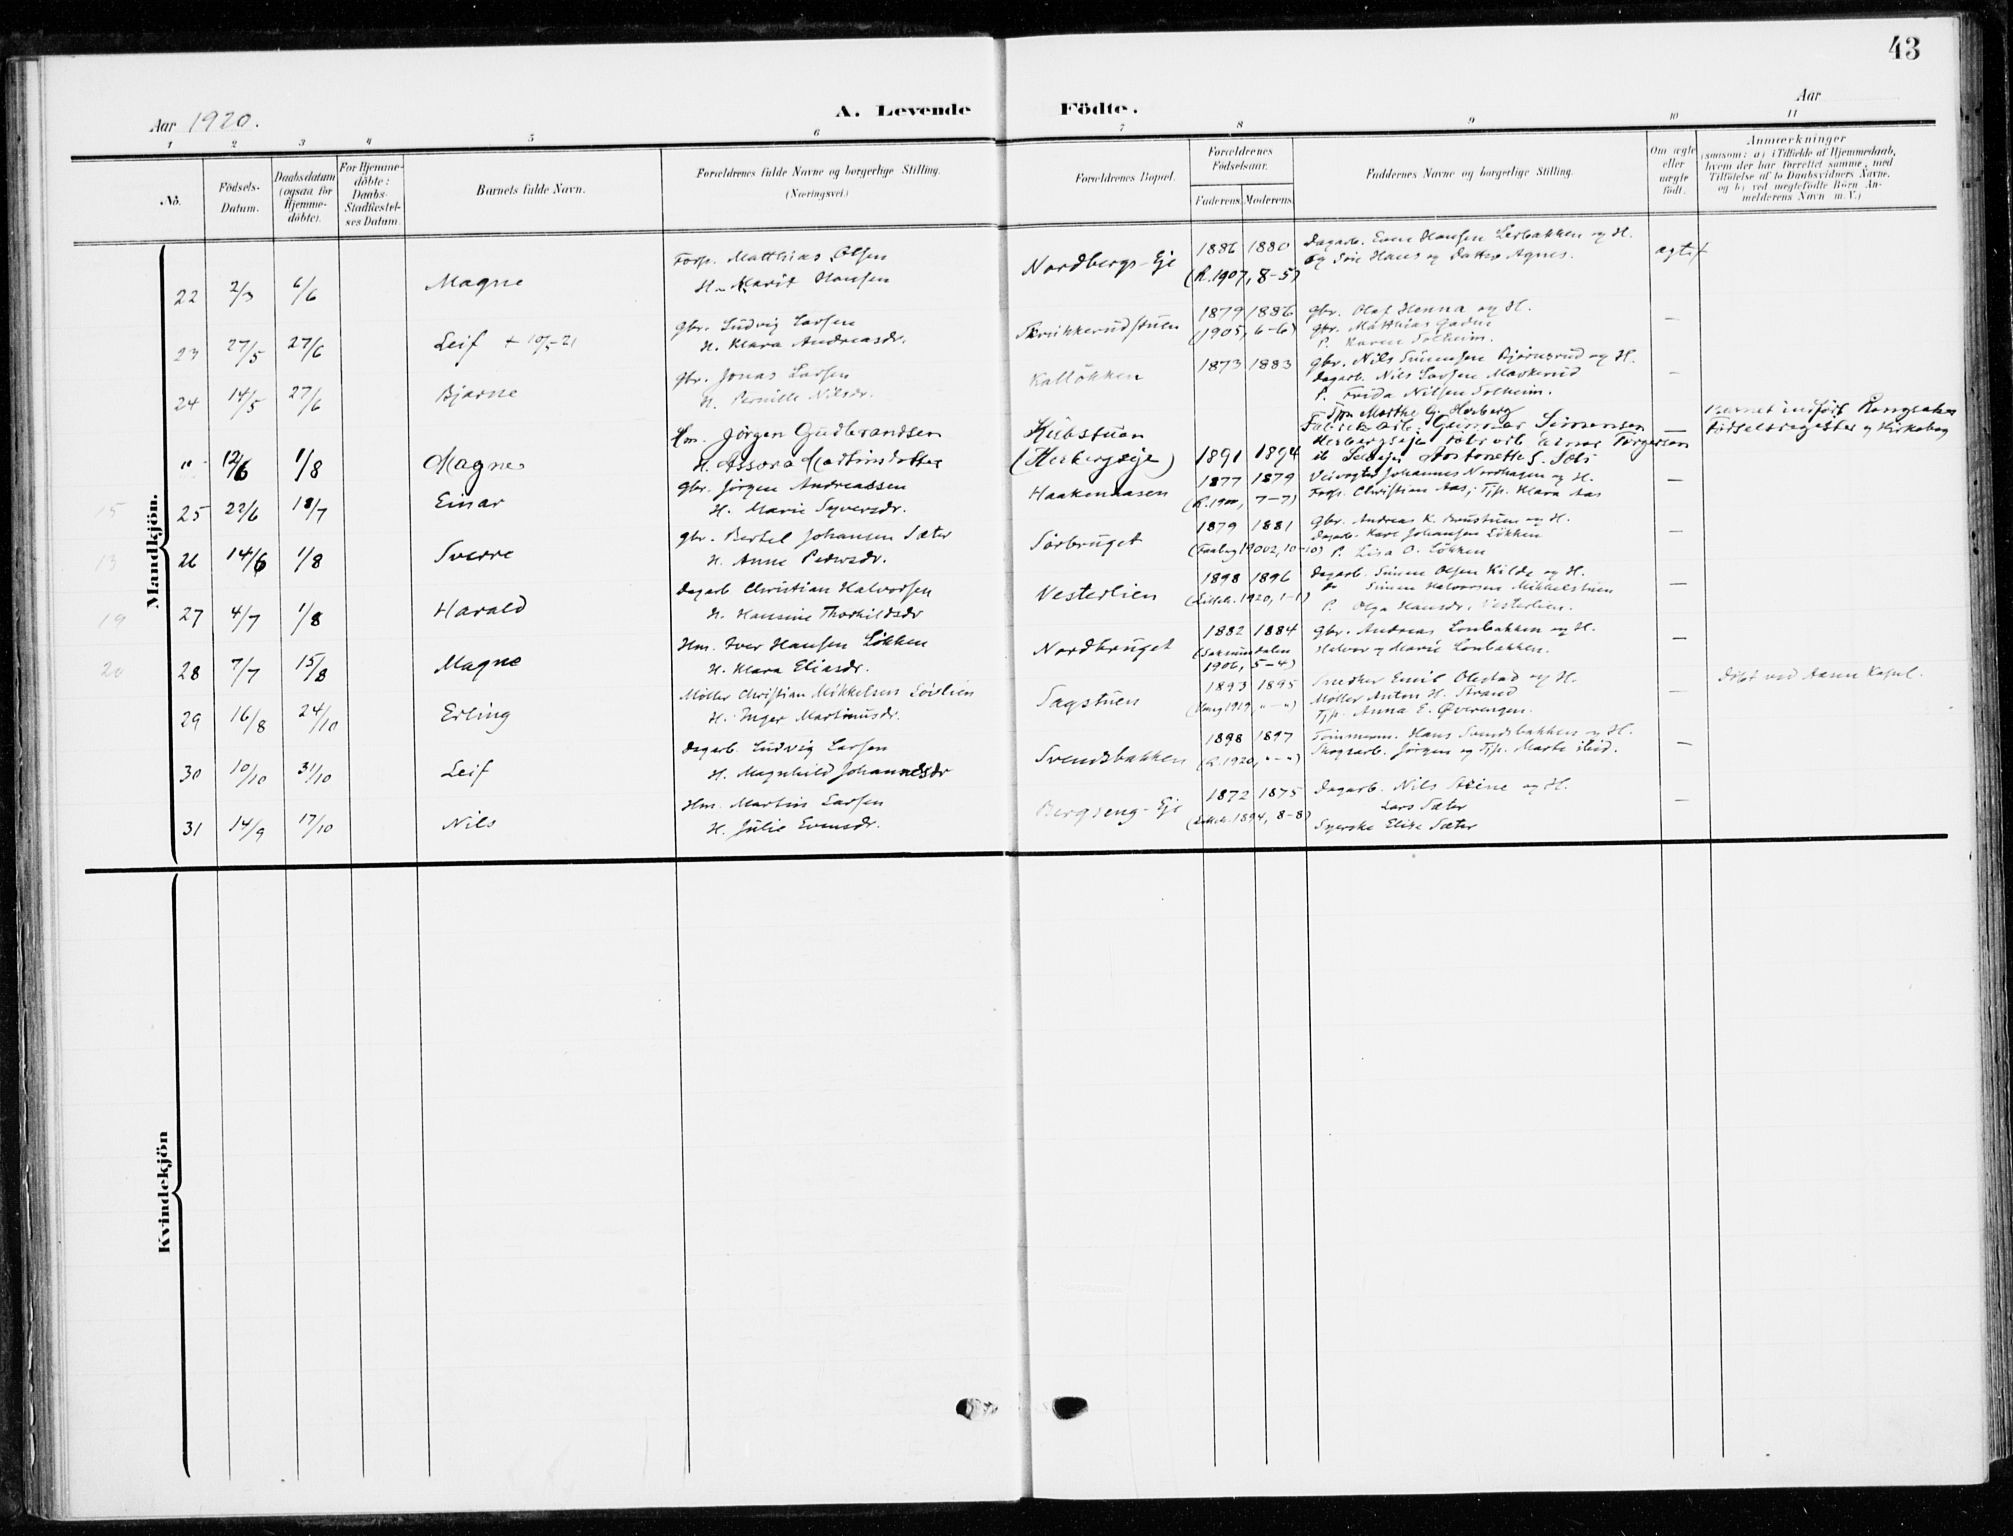 43
A. Levende Födte.
Aar 1920.
Aar
1 2 3 4 5 6 7 8 9 10 11
No.
Födsels-Datum.
Daabsdatum (ogsaa for Hjemme-döbte).
For Hjemme-döbte: Daabs-Stadfæstel-ses Datum.
Barnets fulde Navn.
Forældrenes fulde Navne og borgerlige Stilling.
(Næringsvei.)
Forældrenes Bopæl.
Forældrenes Födselsaar.
Faderens. Moderens.
Faddernes Navne og borgerlige Stilling.
Om ægte eller uægte födt.
Anmærkninger
(saasom: a) i Tilfælde af Hjemmedaab, hvem der har forrettet samme, med Tilföielse af to Daabsvidners Navne, og b) ved uægtefödte Börn An-melderens Navn m. V.)
Mandkjön.
Forp. Matthias Olsen 1886 1880 Dagarb. Even Hansen Lerbakken og H.
22 2/3 6/6 Magne H. Marit Hansen Nordbergs-Eje (R. 1907, 8-5) og Hans og Datter Agnes. ægte
Gbr. Ludvig Larsen 1879 1886 Gbr. Olaf Henna og H.
23 27/5 27/6 Leif + 10/5-21 H. Klara Andreasdr. (1905, 6-6) Gbr. Matthias —
P. Karen Solheim.
Gbr. Jonas Larsen Kalløkken 1873 1883 Gbr. Nils Simensen Bjørnerud og H.
24 14/5 27/6 Bjarne H. Pernille Nilsdr. Dagarb. Nils Larsen —
P. Frida Nilsen Solheim.
Tjp. Marthe G. Herberg
Hm. Jørgen Gudbrandsen Fabrikarb. Gunnar Simensen — Barnet indført Ringsaker
" 12/6 1/8 Magne H. Assora Martinsdatter (Herbergseje) 1891 1894 Herbergseje Torgersen Fødselsregister og Kirkebog
Gbr. Jørgen Andreassen 1877 1879 Veivogter Johannes Nordhagen og H.
15 25 22/6 18/7 Einar H. Marie Syversdr. Haakenaasen 7-7) Forp. Christian Aas; Tjp. Klara Aas —
Gbr. Bertel Johansen Sæter 1879 1881 Gbr. Andreas K. og H.
13 26 14/6 1/8 Sverre H. Anne Pedersdr. Sørbruget (Faaberg 1902, 10-10) Dagarb. Karl Johansen Løkken —
P. Lisa O. Løkken
Dagarb. Christian Halvorsen 1898 1896 Dagarb. Simen Olsen Kilde og H.
19 27 4/7 1/8 Harald H. Hansine Thorkildsdr Vesterlien 1920, 1-1) Simen Halvorsen Mikkelstuen —
P. Olga Hansdr. Vesterlien.
Hm. Iver Hansen Løkken 1882 1884 Gbr. Andreas Lonbakken og H.
20 28 7/7 15/8 Magne H. Klara Eliasdr. Nordbruget (Saksumdalen 1906, 5-4) Halvor og Marie Lonbakken. —
Møller Christian Mikkelsen 1893 1895 Snedker Emil Olestad og H. Døbt ved Aasen Kapel.
29 16/8 24/10 Erling H. Inger Martinusdr. Sagstuen Møller Anton H. Strand —
Tjp. Anna E. Øverengen.
Dagarb. Ludvig Larsen 1898 1897 Tømmerm. Hans Svendsbakken og H.
30 10/10 31/10 Leif H. Magnhild Johannesdr Svendsbakken (R. 1920, "-") Skogsarb. Jørgen og Tjp. Marte ibid. —
Hm. Martin Larsen 1872 1875 Dagarb. Nils Stene og H.
31 14/9 17/10 Nils H. Julie Evensdr. Bergseng-Eje 1894, 8-8) Lars Sæter —
Syerske Elise Sæter
Kvindekjön